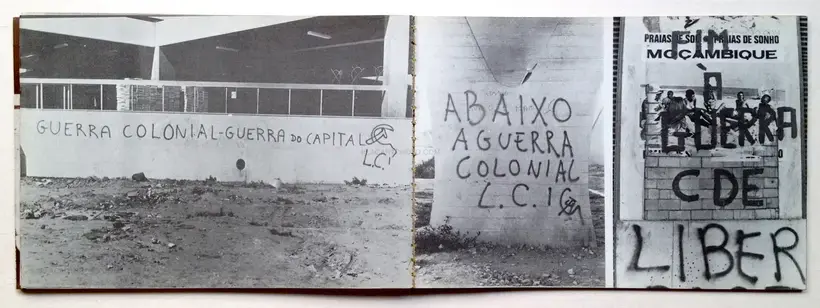 GUERRA COLONIAL-GUERRA DO CAPITAL
L.C.I
ABAIXO
A GUERRA
COLONIAL
L.C.I
PRAIAS DE SOL PRAIAS DE SONHO
MOÇAMBIQUE
FIM
À
GUERRA
CDE
LIBER